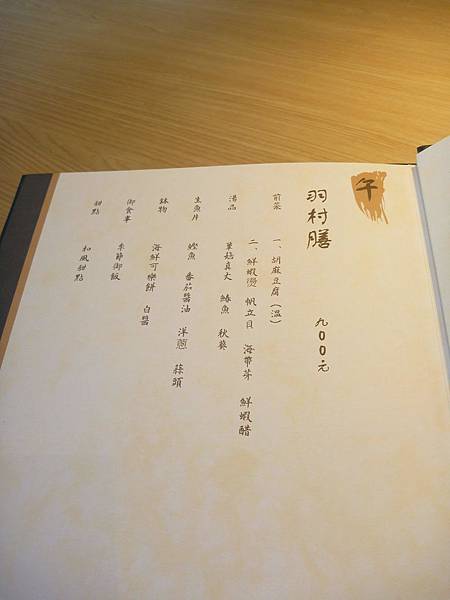 午
羽村膳 九００元
前菜 一、胡麻豆腐（溫）
二、鮮蝦燙 帆立貝 海帶芽 鮮蝦醋
湯品 蕈菇真丈 鰆魚 秋葵
生魚片 鰹魚 番茄醬油 洋蔥 蒜頭
鉢物 海鮮可樂餅 白醬
御食事 季節御飯
甜點 和風甜點